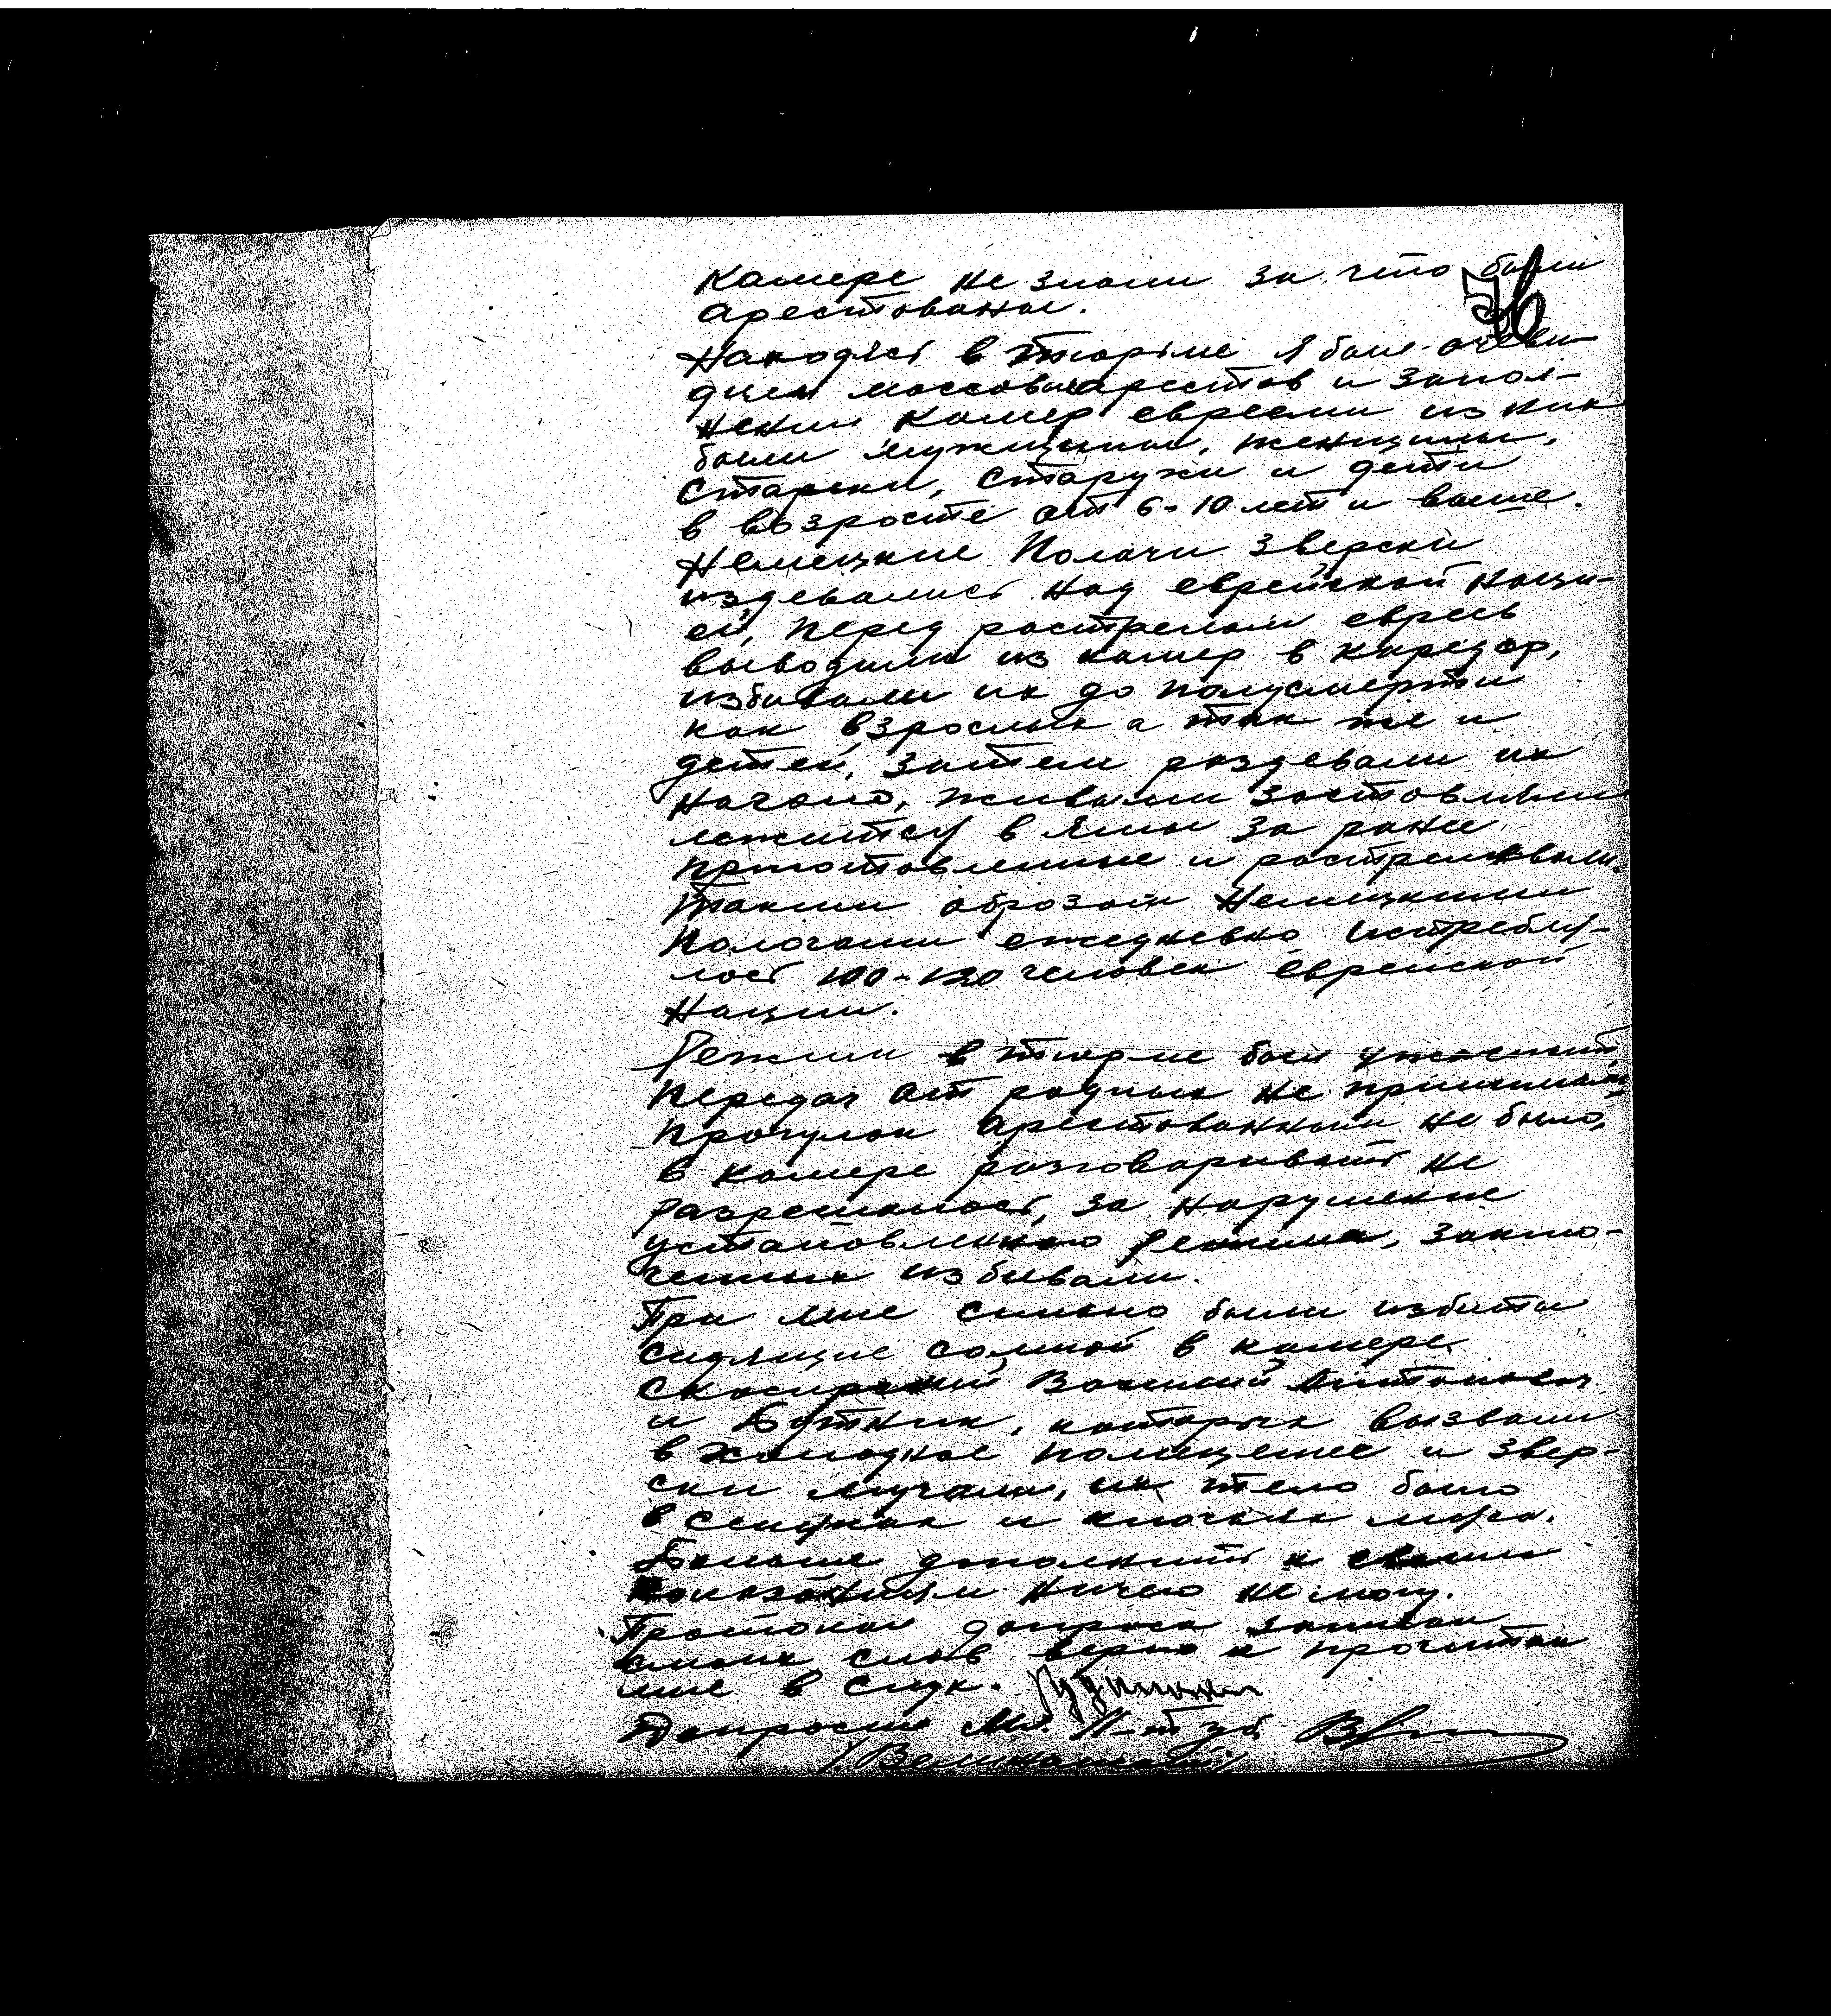 камере не знали за что были
арестованы.
76
Находясь в тюрьме я был очеви-
дцем массовых арестов и запол-
нении камер евреями из них
были мужщины, женщины,
старики, старухи и дети
в возрасте от 6-10 лет и выше.
Немецкие Полачи зверски
издевались над еврейской наци-
ей, перед расстрелом евреев
выводили из камер в каредор,
избивали их до полусмерти
как взрослых а так же и
детей, затем раздевали их
наголо, живыми заставляли
ложится в ямы за ранее
приготовленные и растреливали.
Таким образом Немецкими
Полочами ежедневно истребля-
лось 100-120 человек еврейской
Нации.
Режим в тюрме был ужасный
Передач от родных не принимали
Прогулок арестованным не было,
в камере разговаривать не
разрешалось, за нарушение
установленного режима, заклю-
ченных избивали.
При мне сильно были избиты
сидящие сомной в камере
Василий Антонович
и Боткин, которых вызвали
в холодное помещение и звер-
ски мучали, их тело было
в синяках и клочьях мяса.
Больше дополнить к своим
показаниям ничего не могу.
Протокол допроса записан
смоих слов верно и прочитан
мне в слух.
Допросил Мл. Л-т г/б